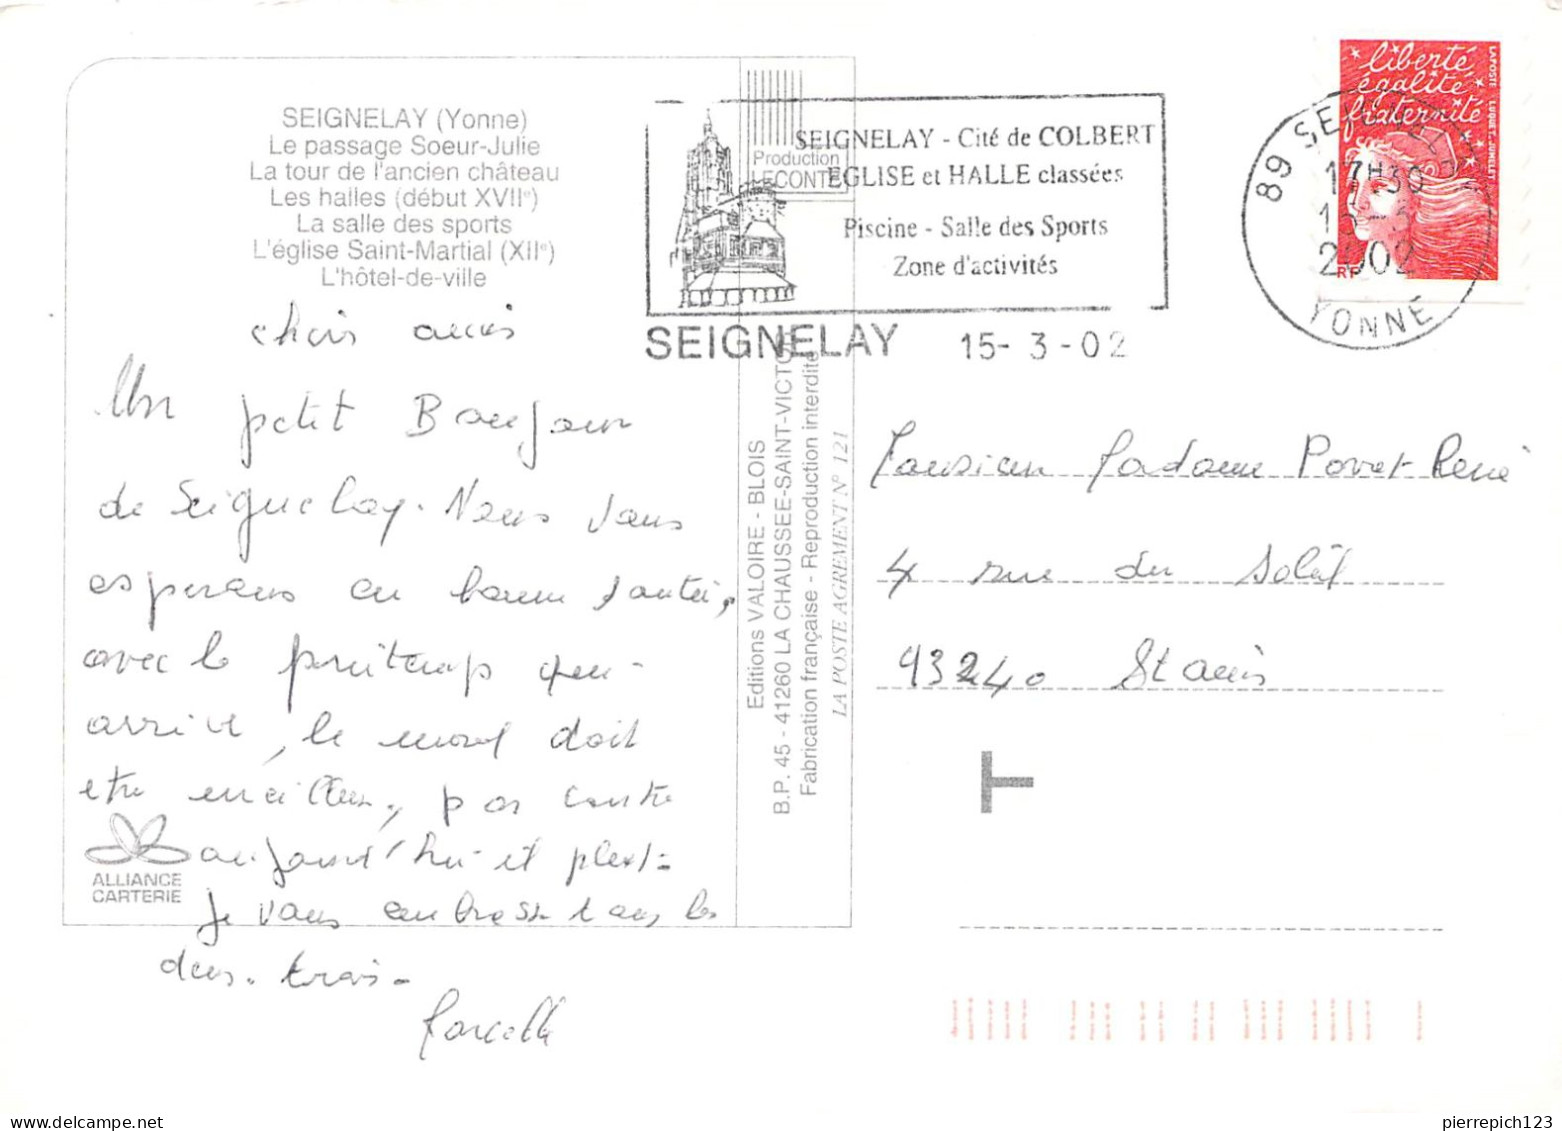 SEIGNELAY (Yonne)
Le passage Soeur-Julie
La tour de l'ancien château
Les halles (début XVIIe)
La salle des sports
L'église Saint-Martial (XIIe)
L'hôtel-de-ville
chers amis
Un petit Bonjour
de Seignelay. Nous vous
esperons en bonne santée,
avec le printemp qui
arrive, le moral doit
etre meilleur, par contre
aujourd'hui il pleut
je vous embrasse tous les
deux. trois.
Marcelle
ALLIANCE
CARTERIE
Production
LECONTE
Editions VALOIRE - BLOIS
B.P. 45 - 41260 LA CHAUSSEE-SAINT-VICTOR
Fabrication française - Reproduction interdite
LA POSTE AGREMENT N° 121
SEIGNELAY - Cité de COLBERT
EGLISE et HALLE classées
Piscine - Salle des Sports
Zone d'activités
SEIGNELAY 15- 3 -02
liberté
égalité
fraternité
LAPOSTE LUQUET-JUMELET
RF
89 SEIGNELAY
17H30
15-3
2002
YONNE
Monsieur Madame René
4 rue du Soleil
93240 Stains
T
pierrepich123